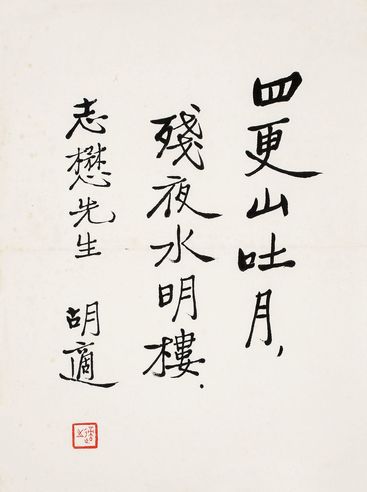 四更山吐月，
殘夜水明樓．
志懋先生 胡適